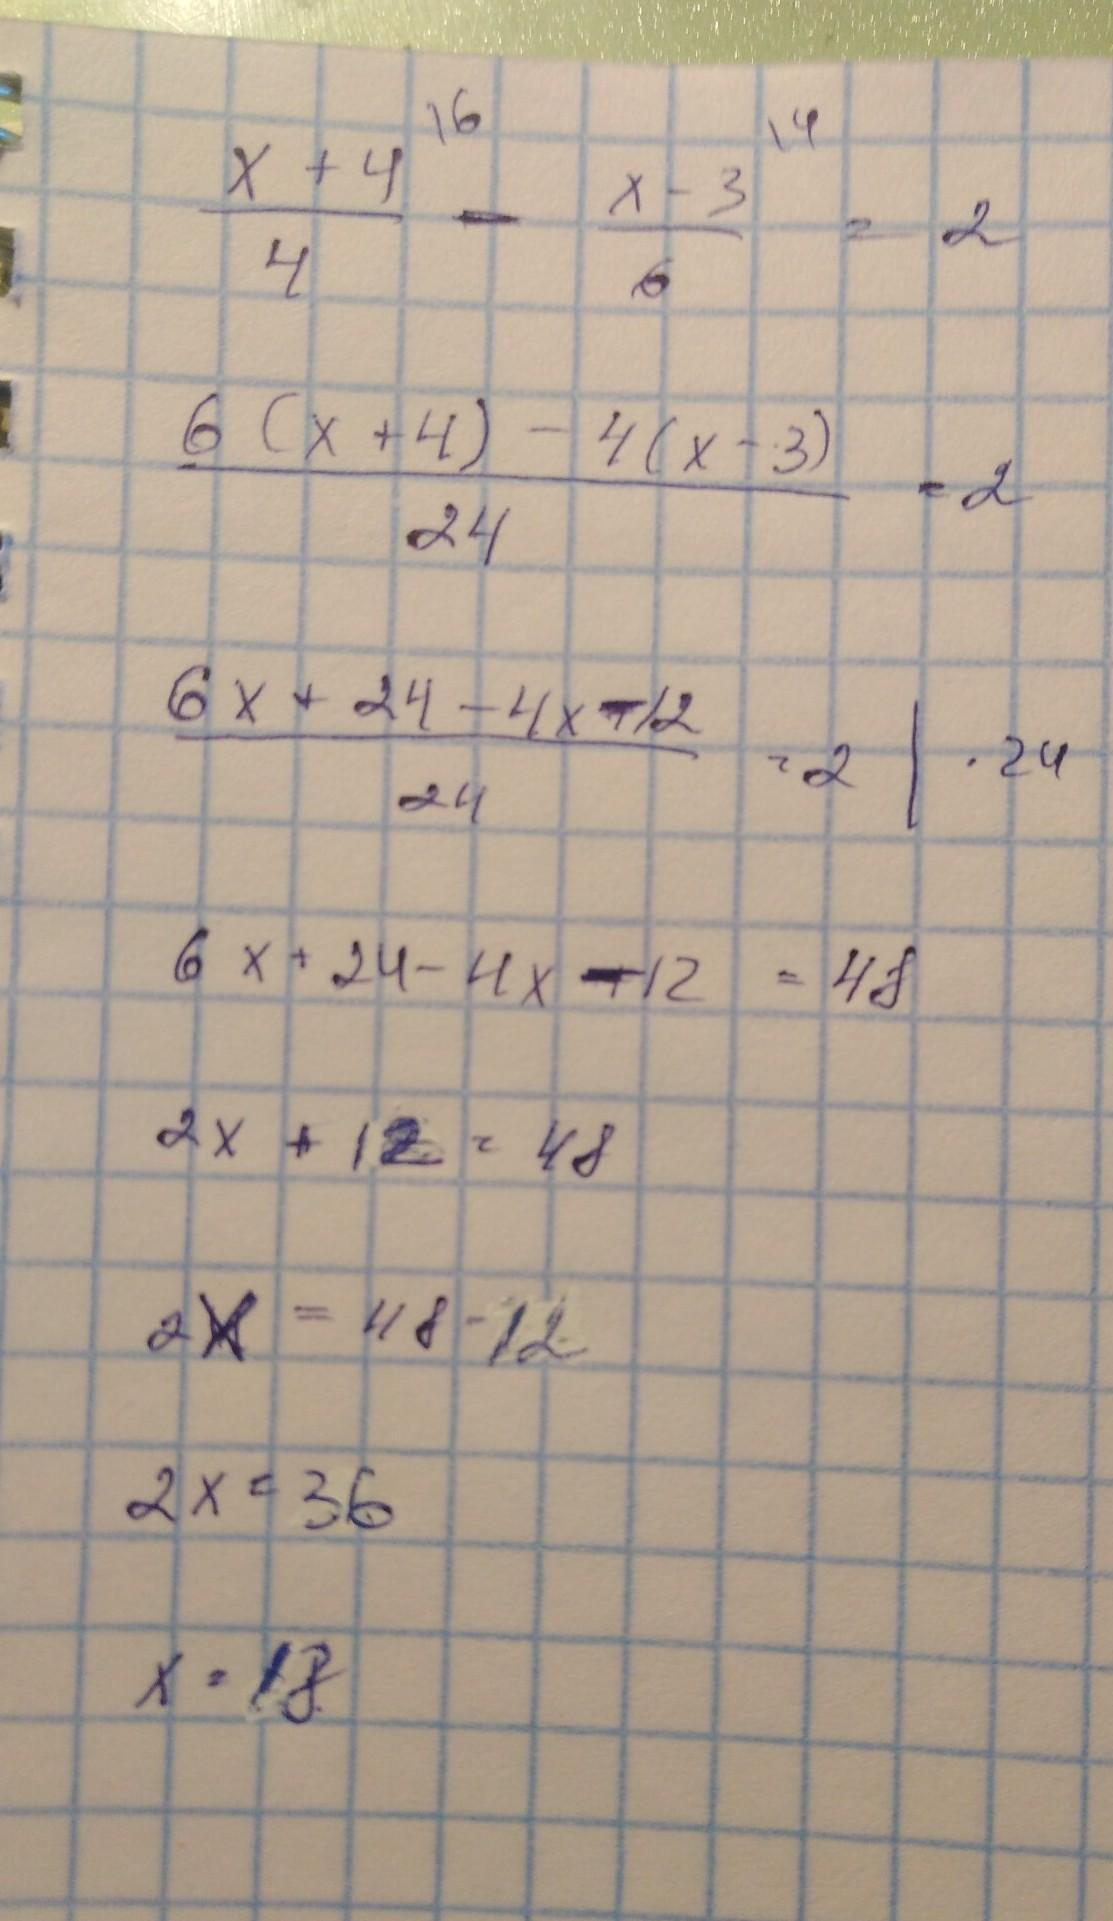 \6 \4
x + 4 / 4 - x - 3 / 6 = 2
6 (x + 4) - 4(x - 3) / 24 = 2
6x + 24 - 4x - 12 / 24 = 2 | · 24
6x + 24 - 4x - 12 = 48
2x + 12 = 48
2x = 48 - 12
2x = 36
x = 18